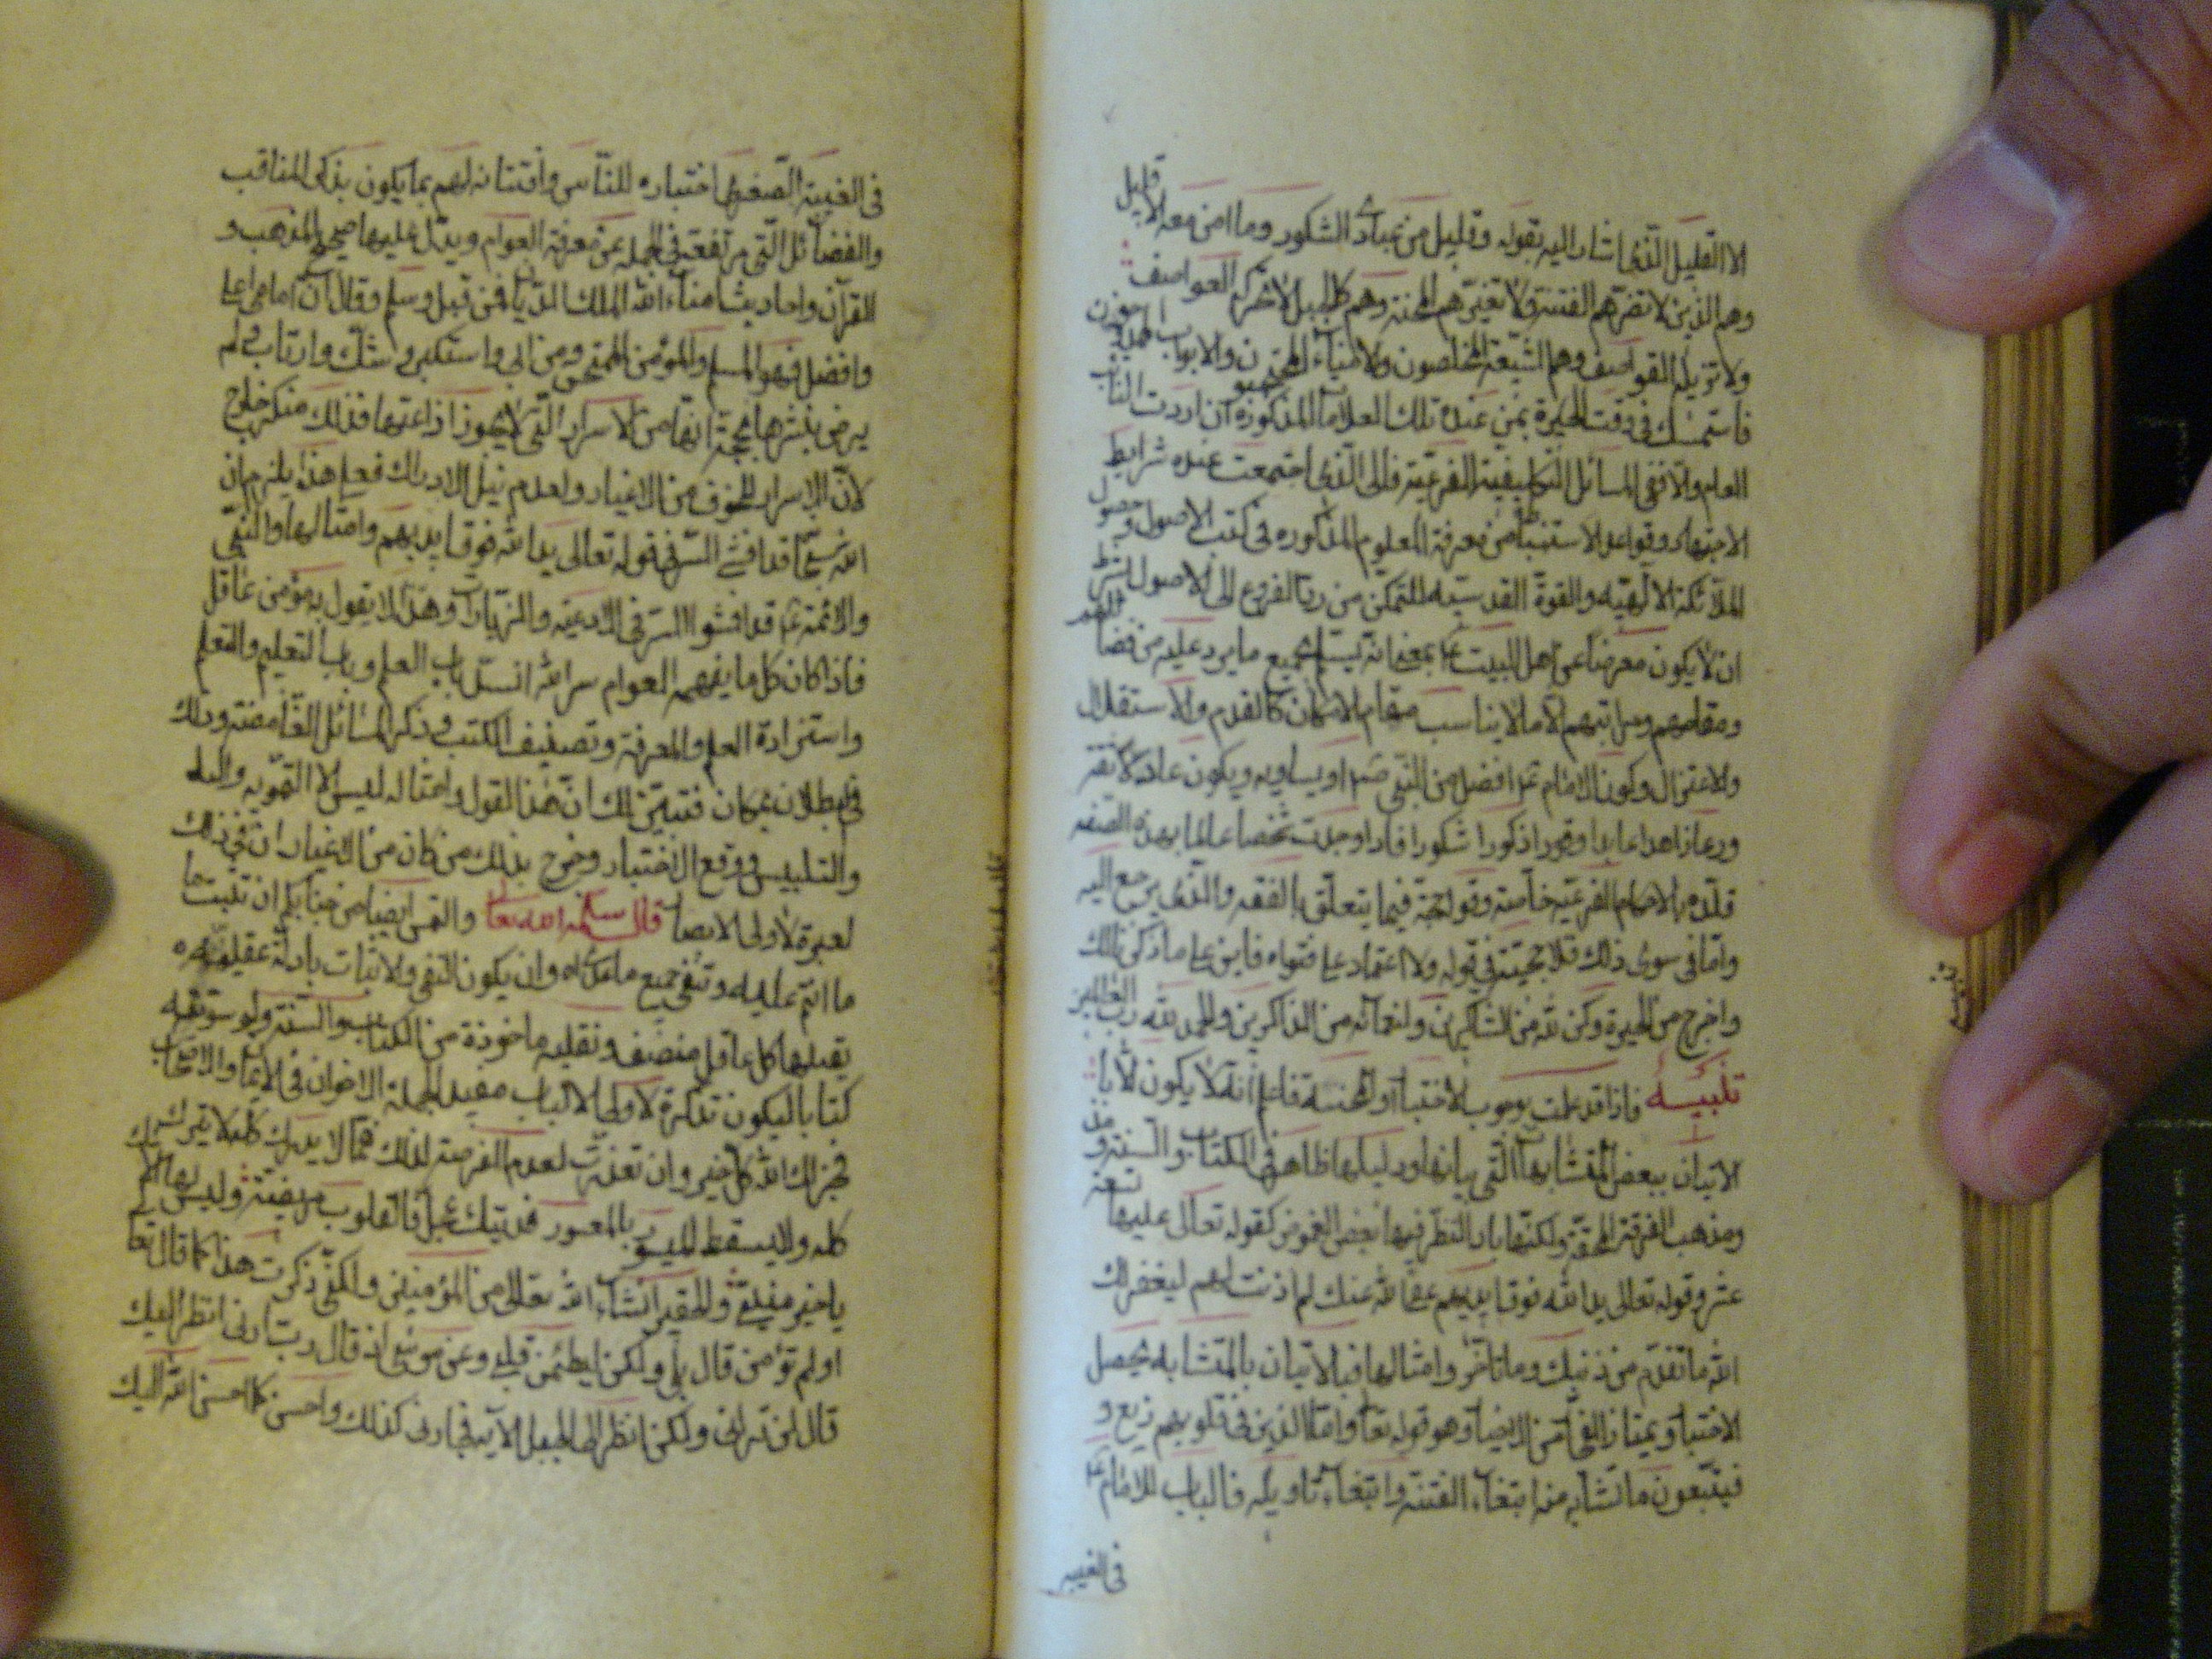 الا القليل الذي اشار اليه بقوله وقليل من عبادي الشكور وما امن معه الا قليل
وهم الذين لا تضرهم الفتنة ولا تغيرهم المحنة وهم كالجبل لا تحركه العواصف
ولا تزيله القواصف وهم الشيعة المخلصون والامناء الممتحنون والابواب
فاستمسك في وقت الحيرة بمن عنده تلك العلامات المذكورة ان اردت
العام والا ففي المسائل التكليفية الفرعية فالى الذي اجتمعت عنده شرايط
الاجتهاد وقواعد الاستنباط من معرفة العلوم المذكوره في كتب الاصول وحصول
الملكة الالهيه والقوة القدسيه للتمكن من رد الفروع الى الاصول بشرط
ان لا يكون معرضا عن اهل البيت ع بمعنى انه يسلم لجميع ما يرد عليه من فضائلهم
ومقامهم ومراتبهم الا ما لا يناسب مقام الامكان كالقدم والاستقلال
والاعتزال وكون الامام ع افضل من النبي ص او يساويه ويكون عادلا ثقة
ورعا زاهدا عابدا وقورا ذكورا شكورا فاذا وجدت شخصا عالما بهذه الصفه
قلده بالاحكام الفرعيه خاصة وقوله حجة فيما يتعلق بالفقه والذي يرجع اليه
واما في سوى ذلك فلا حجية في قوله ولا اعتماد على فتواه فابن على ما ذكرنا لك
واخرج من الحيرة وكن لله من الشاكرين ولنعمائه من الذاكرين والحمد لله رب العالمين
تنبيه فاذا قد علمت بوجوب الاختبار والمحنة فاعلم انه لا يكون الا با
الاتيان ببعض المتشابهات التي بيانها ودليلها ظاهر في الكتاب والسنة و
ومذهب الفرقة المحقة ولكنها بادئ النظر فيها بعض الغموض كقوله تعالى عليها تسعة
عشر وقوله تعالى يد الله فوق ايديهم عفا الله عنك لم اذنت لهم ليغفر لك
الله ما تقدم من ذنبك وما تاخر وامثالها فبالاتيان بالمتشابه يحصل
الاختبار ويمتاز وهو قوله تعالى واما الذين في قلوبهم زيغ و
فيتبعون ما تشابه منه ابتغاء الفتنة وابتغاء تاويله فالباب للامام ع
في الغيبه
في الغيبة الصغرى اختباره للناس وافتتانه لهم بما يكون بذكر المناقب
والفضائل التي مرتفعة في الجمله عن معرفة العوام ويدل عليها صحيح المذهب و
القران واحاديث امناء الله الملك الديان فمن قبل وسلم وقال ان امامي اعلى
وافضل فهو المسلم والمؤمن الممتحن ومن ابى واستكبر وشك وارتاب ولم
يرض بنشرها بحجة انها من الاسرار التي لا يجوز اذاعتها فذلك منكر خارج
لان الاسرار للخوف من الاغيار ولعدم نيل الادراك فعلى هذا يلزم ان
الله سبحانه قد افشى السر في قوله تعالى يد الله فوق ايديهم وامثالها والنبي
والائمة ع قد افشوا السر في الادعيه والزيارات وهذا لا يقول به مؤمن عاقل
فاذا كان كل ما يفهمه العوام سر الله انسد باب العلم وباب التعليم والتعلم
واستزادة العلم والمعرفة وتصنيف الكتب وذكر المسائل الغامضة وذلك
في البطلان بمكان فتبين لك ان هذا القول وامثاله ليس الا التمويه والبله
والتلبيس ووقع الاختبار وخرج بذلك من كان من الاغيار ان في ذلك
لعبرة لاولي الابصار قال سلمه الله تعالى والتمس ايضا من جنابكم ان تثبت ما
ما انتم عليه وتنفي جميع ما عداه وان يكون النفي والاثبات بادلة عقليه
يقبلها كل عاقل منصف ونقليه ماخوذة من الكتاب والسنة ولو سوتموه
كتابا ليكون تذكرة لاولي الالباب مفيد لجملة الاخوان في الايمان والاصحاب
فجزاك الله كل خير وان تعذرت لعدم الفرصة لذلك فما لا يدرك كله لا يترك
كله ولا يسقط الميسور بالمعسور فديتك عجل فالقلوب مريضة وليس لها الا
يا خير مفدي والحقير انشاء الله تعالى من المؤمنين ولكني ذكرت هذا كما قال تعالى
اولم تؤمن قال بلى ولكن ليطمئن قلبي وعن موسى اذ قال رب ارني انظر اليك
قال لن تراني ولكن انظر الى الجبل الآية فجارني كذلك واحسن كما احسن الله اليك